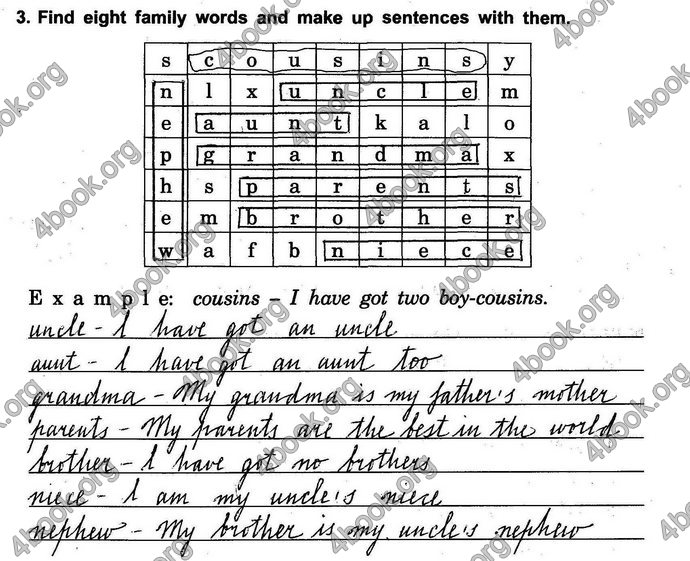 3. Find eight family words and make up sentences with them.
s c o u s i n s y
n l x u n c l e m
e a u n t k a l o
p g r a n d m a x
h s p a r e n t s
e m b r o t h e r
w a f b n i e c e
Example: cousins – I have got two boy-cousins.
uncle - I have got an uncle
aunt - I have got an aunt too
grandma - My grandma is my father's mother
parents - My parents are the best in the world
brother - I have got no brothers
niece - I am my uncle's niece
nephew - My brother is my uncle's nephew
4book.org